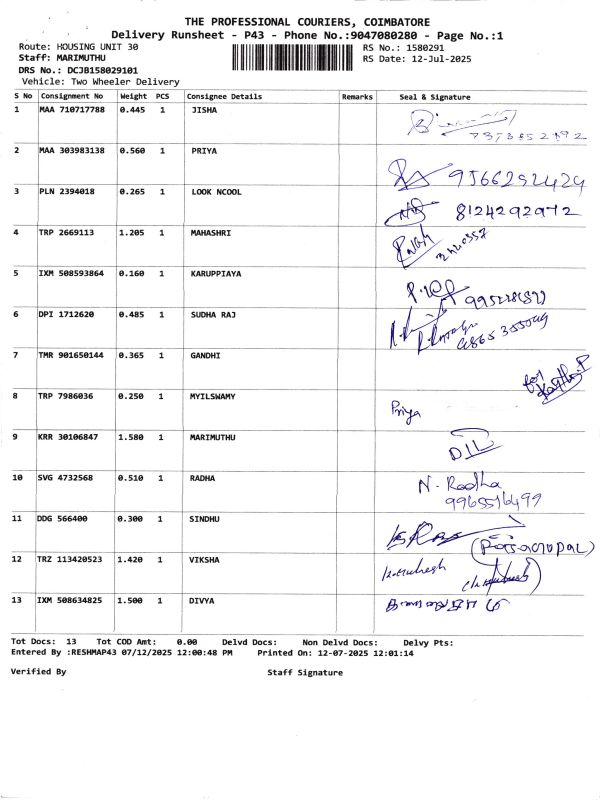 THE PROFESSIONAL COURIERS, COIMBATORE
Delivery Runsheet - P43 - Phone No.:9047080280 - Page No.:1
Route: HOUSING UNIT 30 RS No.: 1580291
Staff: MARIMUTHU RS Date: 12-Jul-2025
DRS No.: DCJB158029101
Vehicle: Two Wheeler Delivery
S No Consignment No Weight PCS Consignee Details Remarks Seal & Signature
1 MAA 710717788 0.445 1 JISHA
2 MAA 303983138 0.560 1 PRIYA
3 PLN 2394018 0.265 1 LOOK NCOOL 8124292972
4 TRP 2669113 1.205 1 MAHASHRI
5 IXM 508593864 0.160 1 KARUPPIAYA
6 DPI 1712620 0.485 1 SUDHA RAJ
7 TMR 901650144 0.365 1 GANDHI
8 TRP 7986036 0.250 1 MYILSWAMY Priya
9 KRR 30106847 1.580 1 MARIMUTHU
10 SVG 4732568 0.510 1 RADHA N. Radha
9965516499
11 DDG 566400 0.300 1 SINDHU
12 TRZ 113420523 1.420 1 VIKSHA
13 IXM 508634825 1.500 1 DIVYA
Tot Docs: 13 Tot COD Amt: 0.00 Delvd Docs: Non Delvd Docs: Delvy Pts:
Entered By :RESHMAP43 07/12/2025 12:00:48 PM Printed On: 12-07-2025 12:01:14
Verified By Staff Signature